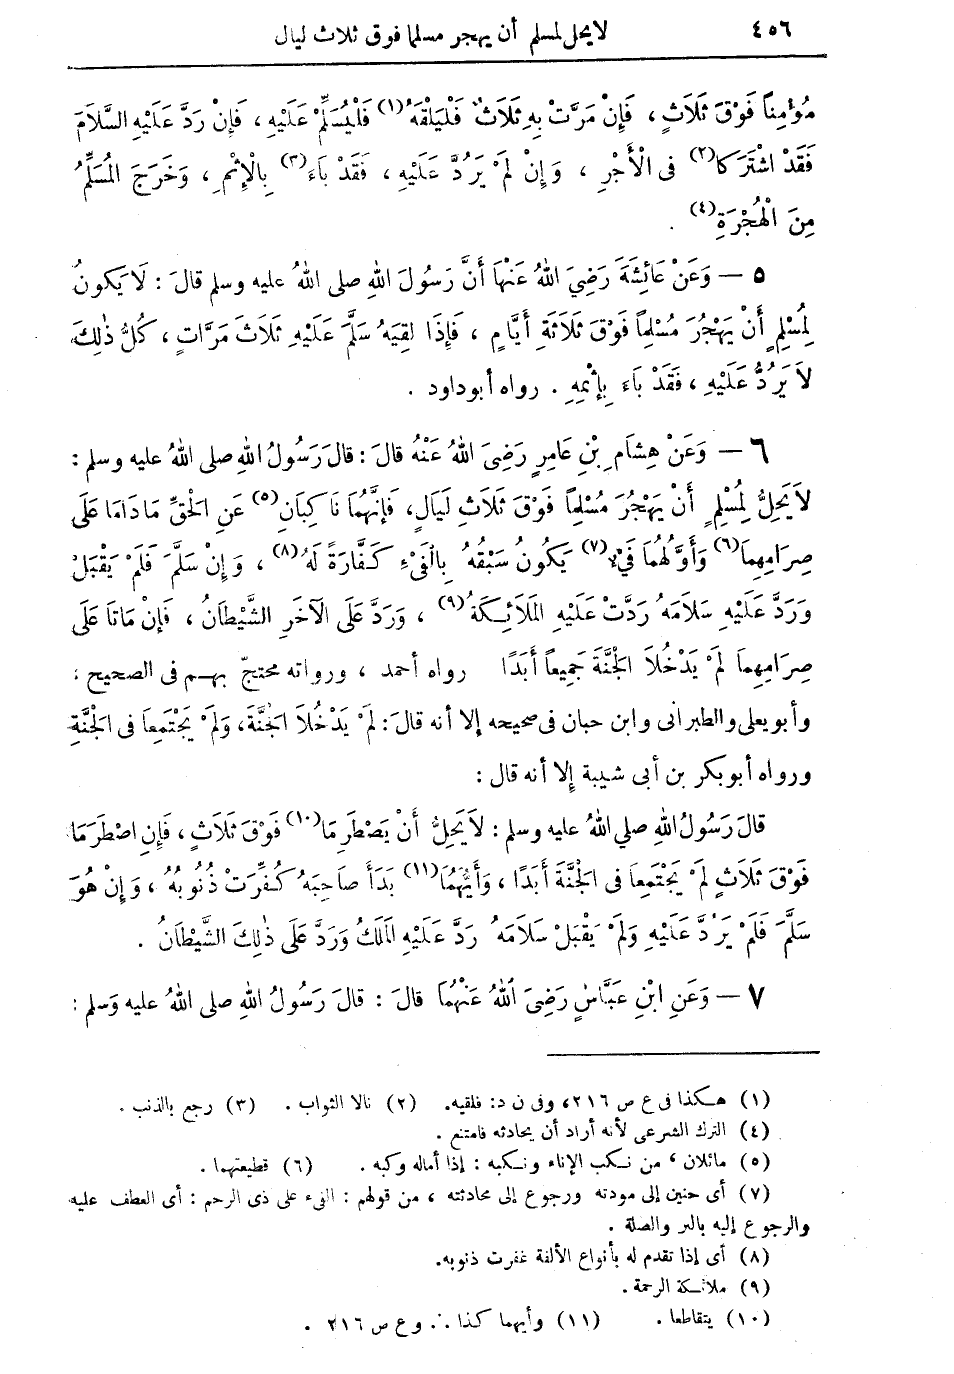 ٤٥٦ لا يحل لمسلم أن يهجر مسلما فوق ثلاث ليال
مُؤْمِناً فَوْقَ ثَلَاثٍ ، فَإِنْ مَرَّتْ بِهِ ثَلَاثٌ فَلْيَلْقَهُ (١) فَلْيُسَلِّمْ عَلَيْهِ ، فَإِنْ رَدَّ عَلَيْهِ السَّلَامَ
فَقَدْ اشْتَرَكَا (٢) فى الْأَجْرِ ، وَإِنْ لَمْ يَرُدَّ عَلَيْهِ ، فَقَدْ بَاءَ (٣) بِالْإِثْمِ ، وَخَرَجَ الْمُسَلِّمُ
مِنَ الْهُجْرَةِ (٤) .
٥ — وَعَنْ عَائِشَةَ رَضِيَ اللهُ عَنْهَا أَنَّ رَسُولَ اللهِ صلى اللهُ عليه وسلم قالَ : لَا يَكونُ
لِمُسْلِمٍ أَنْ يَهْجُرَ مُسْلِماً فَوْقَ ثَلَاثَةِ أَيَّامٍ ، فَإِذَا لَقِيَهُ سَلَّمَ عَلَيْهِ ثَلَاثَ مَرَّاتٍ ، كُلُّ ذٰلِكَ
لاَ يَرُدُّ عَلَيْهِ ، فَقَدْ بَاءَ بِإِثْمِهِ . رواه أبو داود .
٦ — وَعَنْ هِشَامِ بْنِ عَامِرٍ رَضِيَ اللهُ عَنْهُ قالَ : قالَ رَسُولُ اللهِ صلى اللهُ عليه وسلم :
لاَ يَحِلُّ لِمُسْلِمٍ أَنْ يَهْجُرَ مُسْلِماً فَوْقَ ثَلَاثِ لَيَالٍ ، فَإِنَّهُمَا نَاكِبَانِ (٥) عَنِ الْحَقِّ مَا دَامَا عَلَى
صِرَامِهِمَا (٦) وَأَوَّلُهُمَا فَيْءٌ (٧) يَكُونُ سَبْقُهُ بِالْفَيْءِ كَفَّارَةً لَهُ (٨) ، وَإِنْ سَلَّمَ فَلَمْ يَقْبَلْ
وَرَدَّ عَلَيْهِ سَلَامَهُ رَدَّتْ عَلَيْهِ الْمَلَائِكَةُ (٩) ، وَرَدَّ عَلَى الْآخَرِ الشَّيْطَانُ ، فَإِنْ مَاتَا عَلَى
صِرَامِهِمَا لَمْ يَدْخُلاَ الْجَنَّةَ جَمِيعاً أَبَدًا رواه أحمد ، ورواته محتجّ بهم فى الصحيح :
وأبو يعلى والطبرانى وابن حبان فى صحيحه إلا أنه قالَ : لَمْ يَدْخُلاَ الْجَنَّةَ ، وَلَمْ يَجْتَمِعَا فى الْجَنَّةِ
ورواه أبو بكر بن أبى شيبة إلا أنه قال :
قالَ رَسُولُ اللهِ صلى اللهُ عليه وسلم : لاَ يَحِلُّ أَنْ يَصْطَرِمَا (١٠) فَوْقَ ثَلَاثٍ ، فَإِنِ اصْطَرَمَا
فَوْقَ ثَلَاثٍ لَمْ يَجْتَمِعَا فى الْجَنَّةِ أَبَدًا ، وَأَيُّهُمَا (١١) بَدَأَ صَاحِبَهُ كُفِّرَتْ ذُنُوبُهُ ، وَإِنْ هُوَ
سَلَّمَ فَلَمْ يَرُدَّ عَلَيْهِ وَلَمْ يَقْبَلْ سَلَامَهُ رَدَّ عَلَيْهِ الْمَلَكُ وَرَدَّ عَلَى ذٰلِكَ الشَّيْطَانُ .
٧ — وَعَنِ ابْنِ عَبَّاسٍ رَضِيَ اللهُ عَنْهُمَا قالَ : قالَ رَسُولُ اللهِ صلى اللهُ عليه وَسلم :
(١) هكذا فى ع ص ٢١٦ ، وفى ن د : فلقيه . (٢) نالا الثواب . (٣) رجع بالذنب .
(٤) الترك الشرعى لأنه أراد أن يحادثه فامتنع .
(٥) مائلان ، من نكب الإناء ونكبه : إذا أماله وكبه . (٦) قطيعتهما .
(٧) أى حنين إلى مودته ورجوع إلى محادثته ، من قولهم : الفىء على ذى الرحم : أى العطف عليه
والرجوع إليه بالبر والصلة .
(٨) أى إذا تقدم له بأنواع الألفة غفرت ذنوبه .
(٩) ملائكة الرحمة .
(١٠) يتقاطعا . (١١) وأيهما كذا ∴ وع ص ٢١٦ .